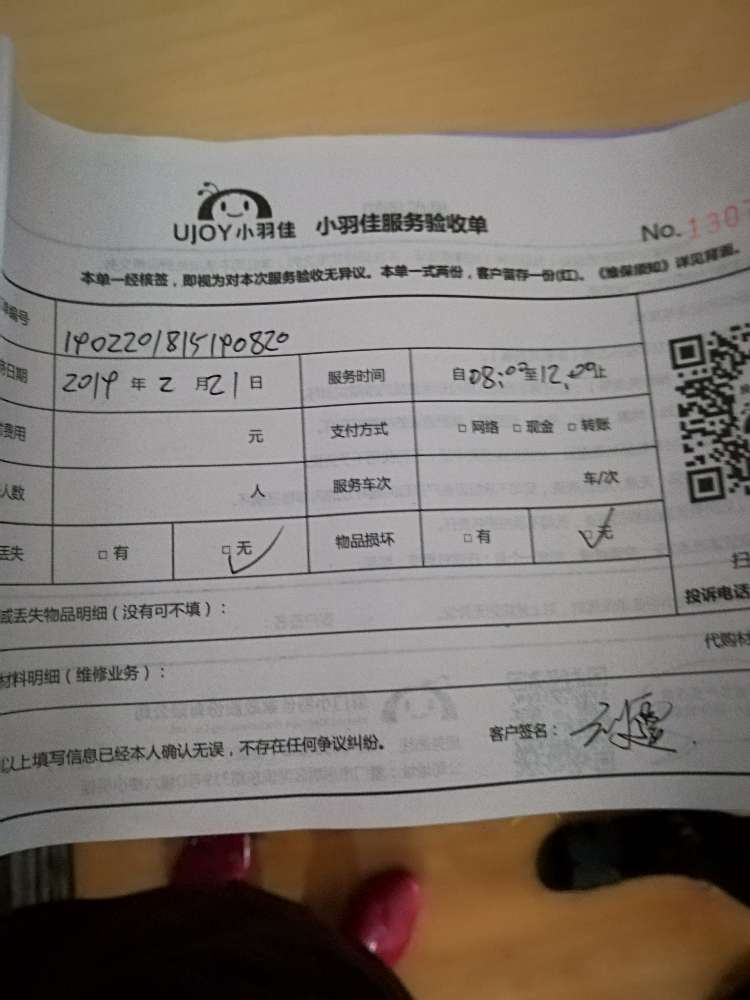 UJOY小羽佳 小羽佳服务验收单
No. 130
本单一经核签，即视为对本次服务验收无异议。本单一式两份，客户留存一份(红)。《维保须知》详见背面。
编号 1902201815190820
日期 2019 年 2 月 21 日 服务时间 自08:00至12:00止
费用 元 支付方式 □ 网络 □ 现金 □ 转账
人数 人 服务车次 车/次
丢失 □ 有 □ 无 物品损坏 □ 有 □ 无
或丢失物品明细（没有可不填）：
投诉电话
材料明细（维修业务）：
代购材
以上填写信息已经本人确认无误，不存在任何争议纠纷。 客户签名：